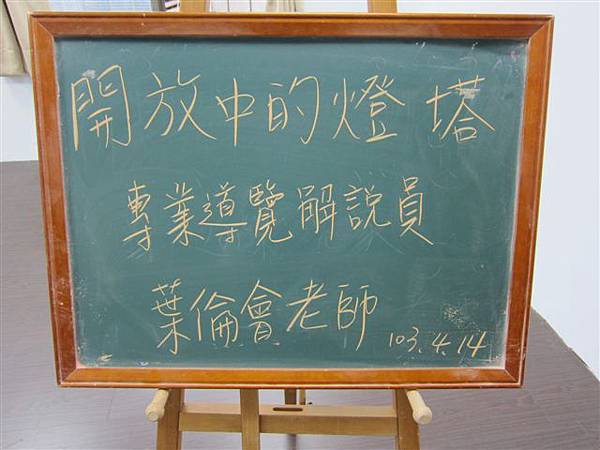 開放中的燈塔
專業導覽解說員
葉倫會老師
103.4.14